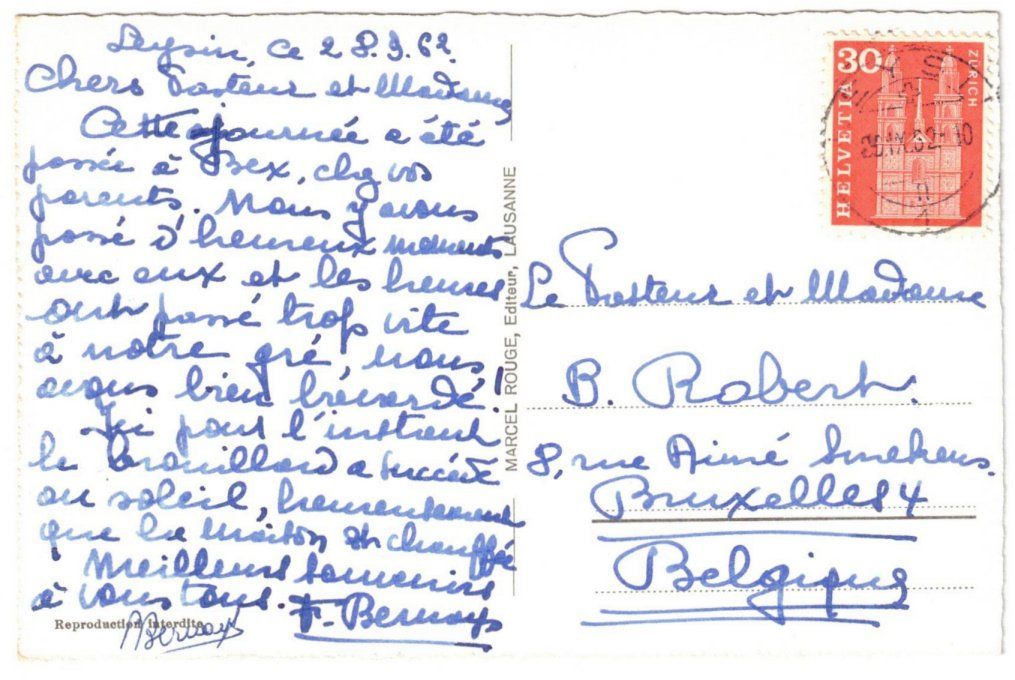 Leysin, ce 28.9.62
Chers Pasteur et Madame
Cette journée a été
passée à Bex, chez vos
parents. Nous y avons
passé d'heureux moments
avec eux et les heures
ont passé trop vite
à notre gré, nous
avons bien bavardé!
Ici pour l'instant
le brouillard a succédé
au soleil, heureusement
que la maison est chauffée
Meilleurs souvenirs
à vous tous. F. Bernoys
Reproduction interdite
MARCEL ROUGE, Editeur, LAUSANNE
30
HELVETIA
ZÜRICH
LEYSIN
IX.62-10
Le Pasteur et Madame
B. Robert.
8, rue Aimé Smekens.
Bruxelles 4
Belgique